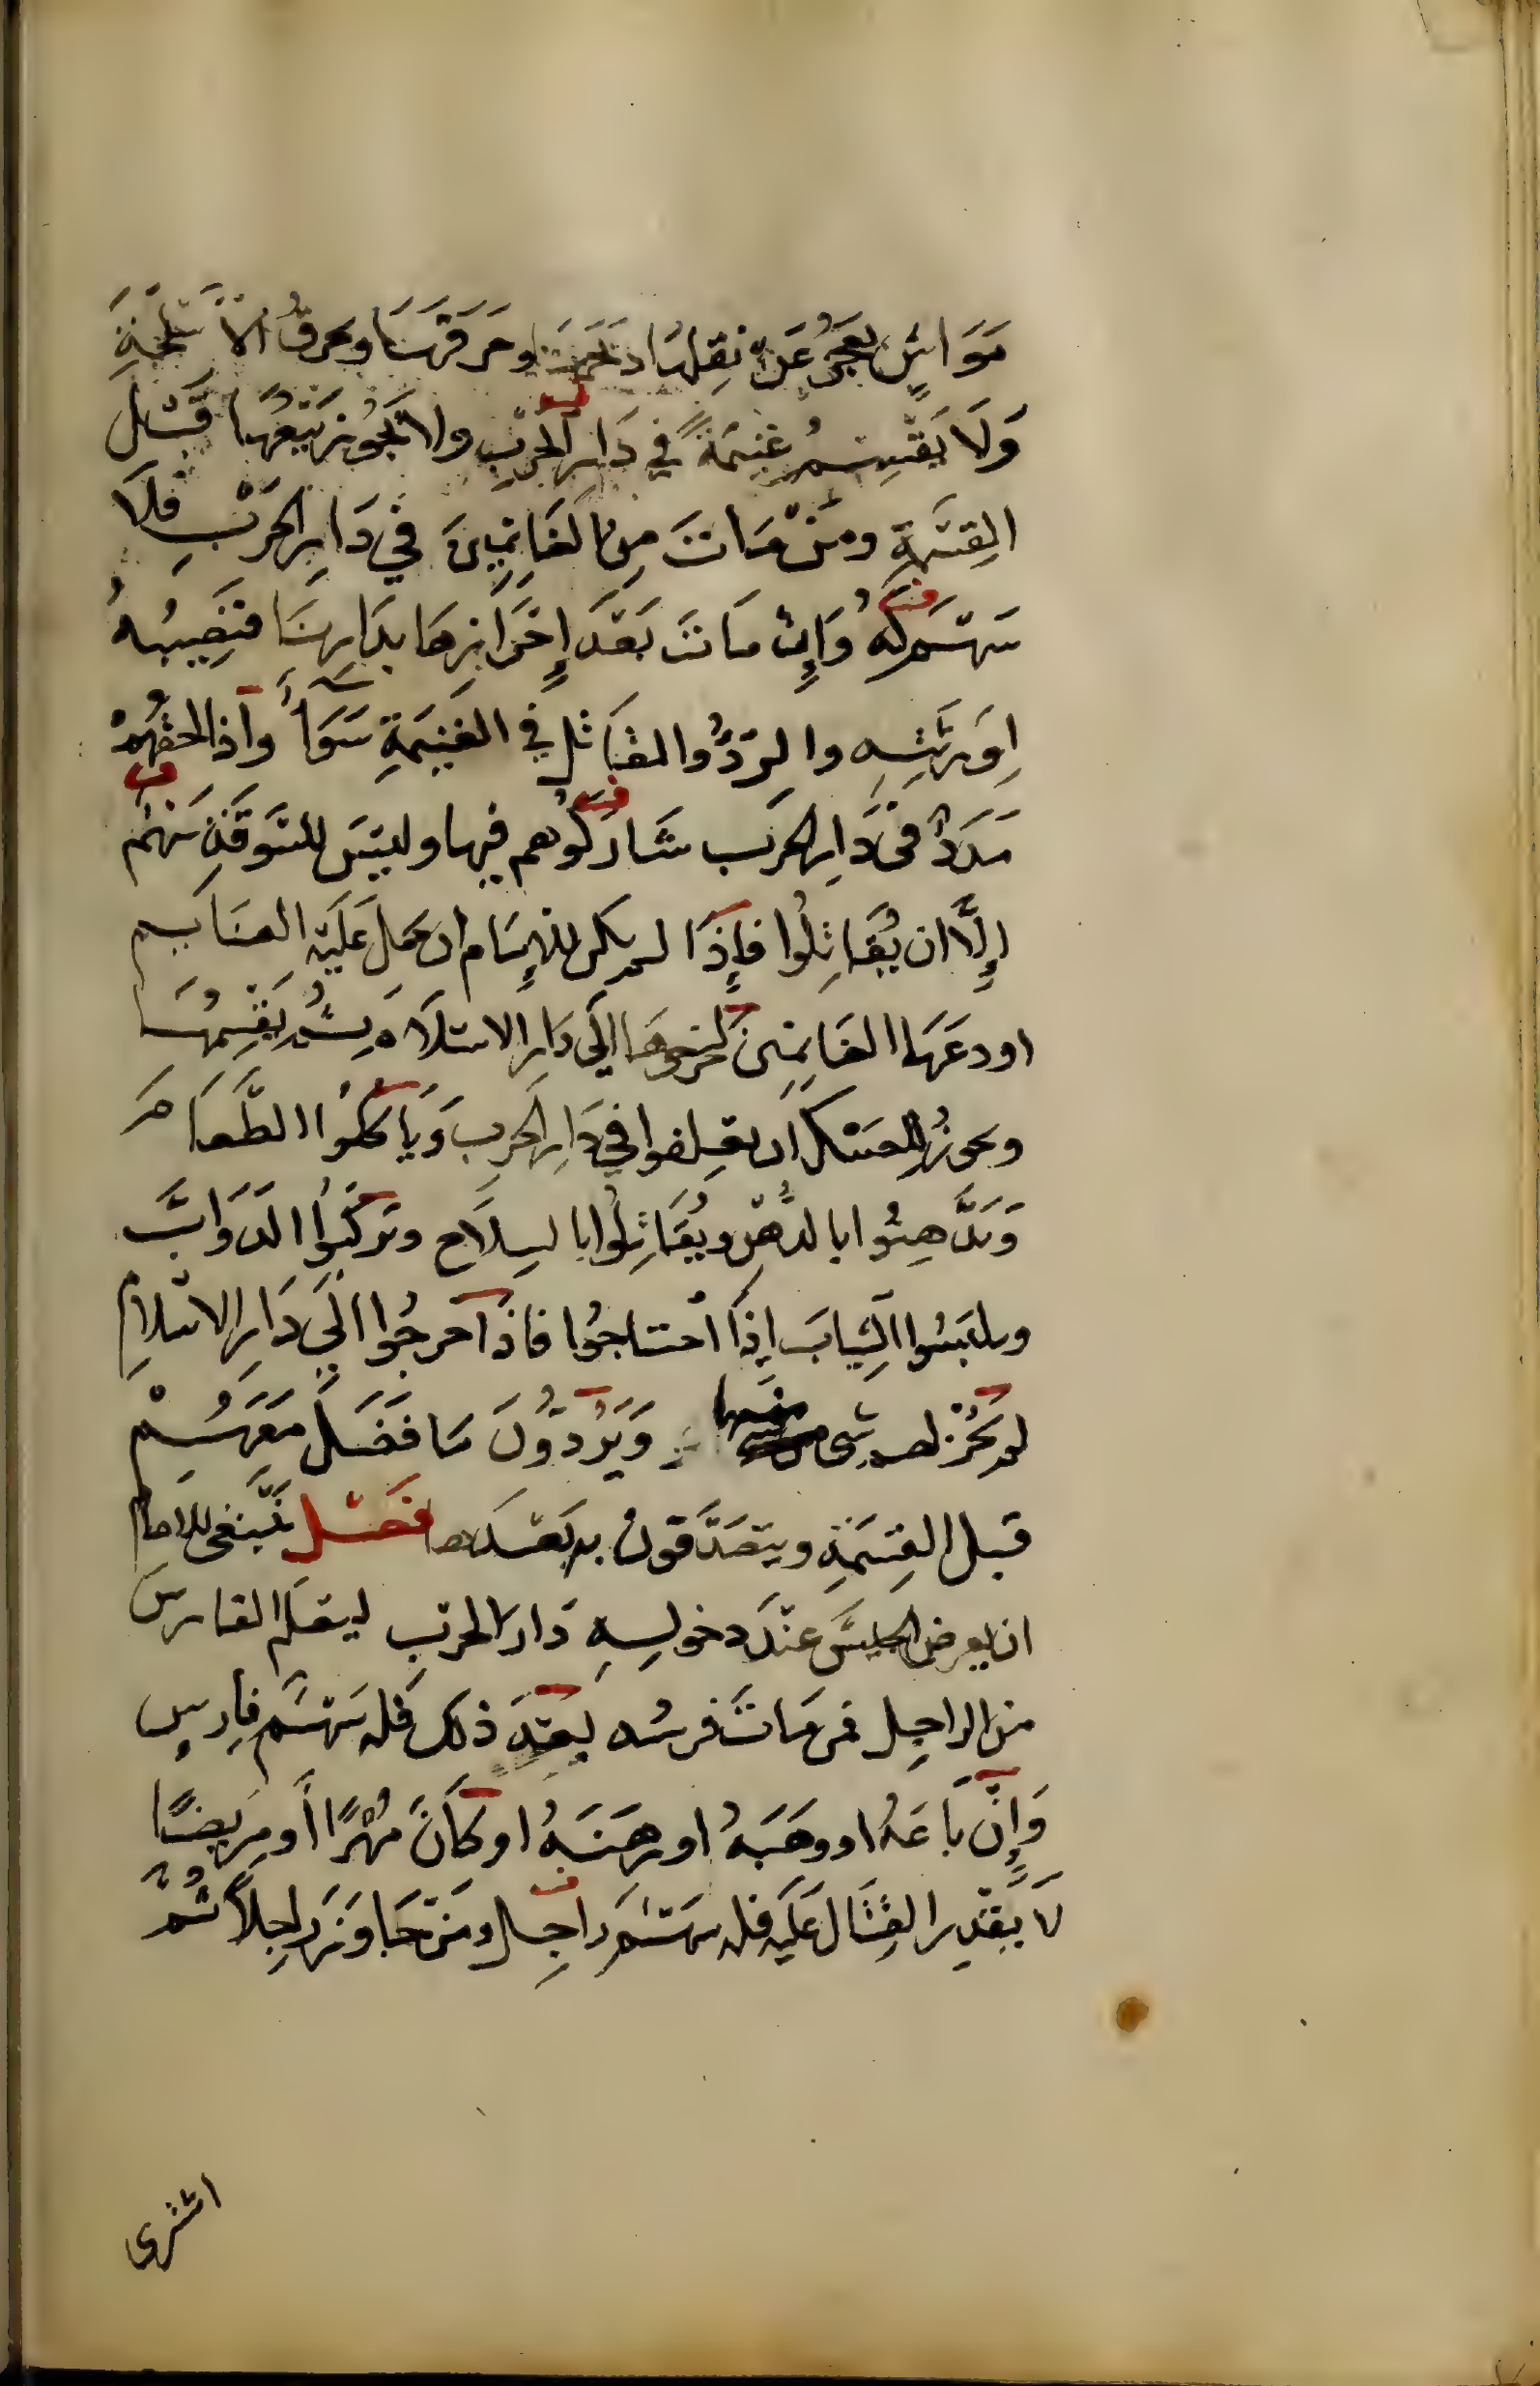 مَوَاشٍ يعجزُ عَنْ نقلِهَا ذبَحَهَا وحَرَقَهَا ويحرقُ الأَسْلِحَةِ
وَلَا يَقْسِمُ غنِيمَةً في دَارِ الحَرْبِ ولا يَجُوز بَيْعُهَا قَبْلَ
القِسْمَةِ ومَنْ مَاتَ مِن الغَانِمِينَ في دَارِ الحَرْبِ فلَا
سَهْمَ لَهُ وَإِنْ مَاتَ بَعْدَ إِحْرَازِهَا بِدَارِنَا فنَصِيبُهُ
لِوَرَثَتِهِ والرِّدْءُ والمقَاتلُ في الغَنِيمَةِ سَوَاءٌ واذَا لحقَهُمْ
مَدَدٌ في دَارِ الحَرْبِ شَارَكُوهم فيها وليسَ للسُّوقَةِ سَهْم
إِلَّا ان يُقَاتِلُوا فإِذَا لم يكن للإِمَام ان يحمل عَلَيْهِ الغنَايِم
اودعَهَا الغَانِمِينَ ليخرجوهَا الَى دَارِ الاسْلَام ثُمَّ يَقْسِمُهَا
ويجوزُ للعسْكَرِ ان يعلِفوا في دَارِ الحَرْبِ وَيَأكلُوا الطَّعَامَ
وَيَدَّهِنُوا بالدُّهْنِ ويُقَاتِلُوا بالسِلَاحِ ويَركَبُوا الدَّوَابَّ
ويلبَسُوا الثِّيابَ إِذَا احْتاجُوا فاذَا خرجُوا الَى دَارِ الاسْلَامِ
لم يَجُزْ لهم شي منها وَيَرُدُّونَ مَا فَضَلَ مَعَهُمْ
قبل القِسْمَةِ ويتصَدَّقونَ به بَعْدَها فَصْل يَنْبَغي للامام
ان يعرض الجيشَ عنْدَ دخولِهِ دَار الحَرْبِ ليعْلَم الفارسَ
من الراجِل فمن مَاتَ فرسُه بعْدَ ذلك فله سَهْمُ فارِسٍ
وَإِنْ بَاعَهُ او وهَبَهُ او رهَنَهُ او كَانَ مُهْرًا أَو مَرِيضًا
لَا يَقْدِر القِتَالَ عَلَيْهِ فله سَهْمُ رَاجِلٍ ومَنْ جَاوَزَ راجِلًا ثُمَّ
اشترى